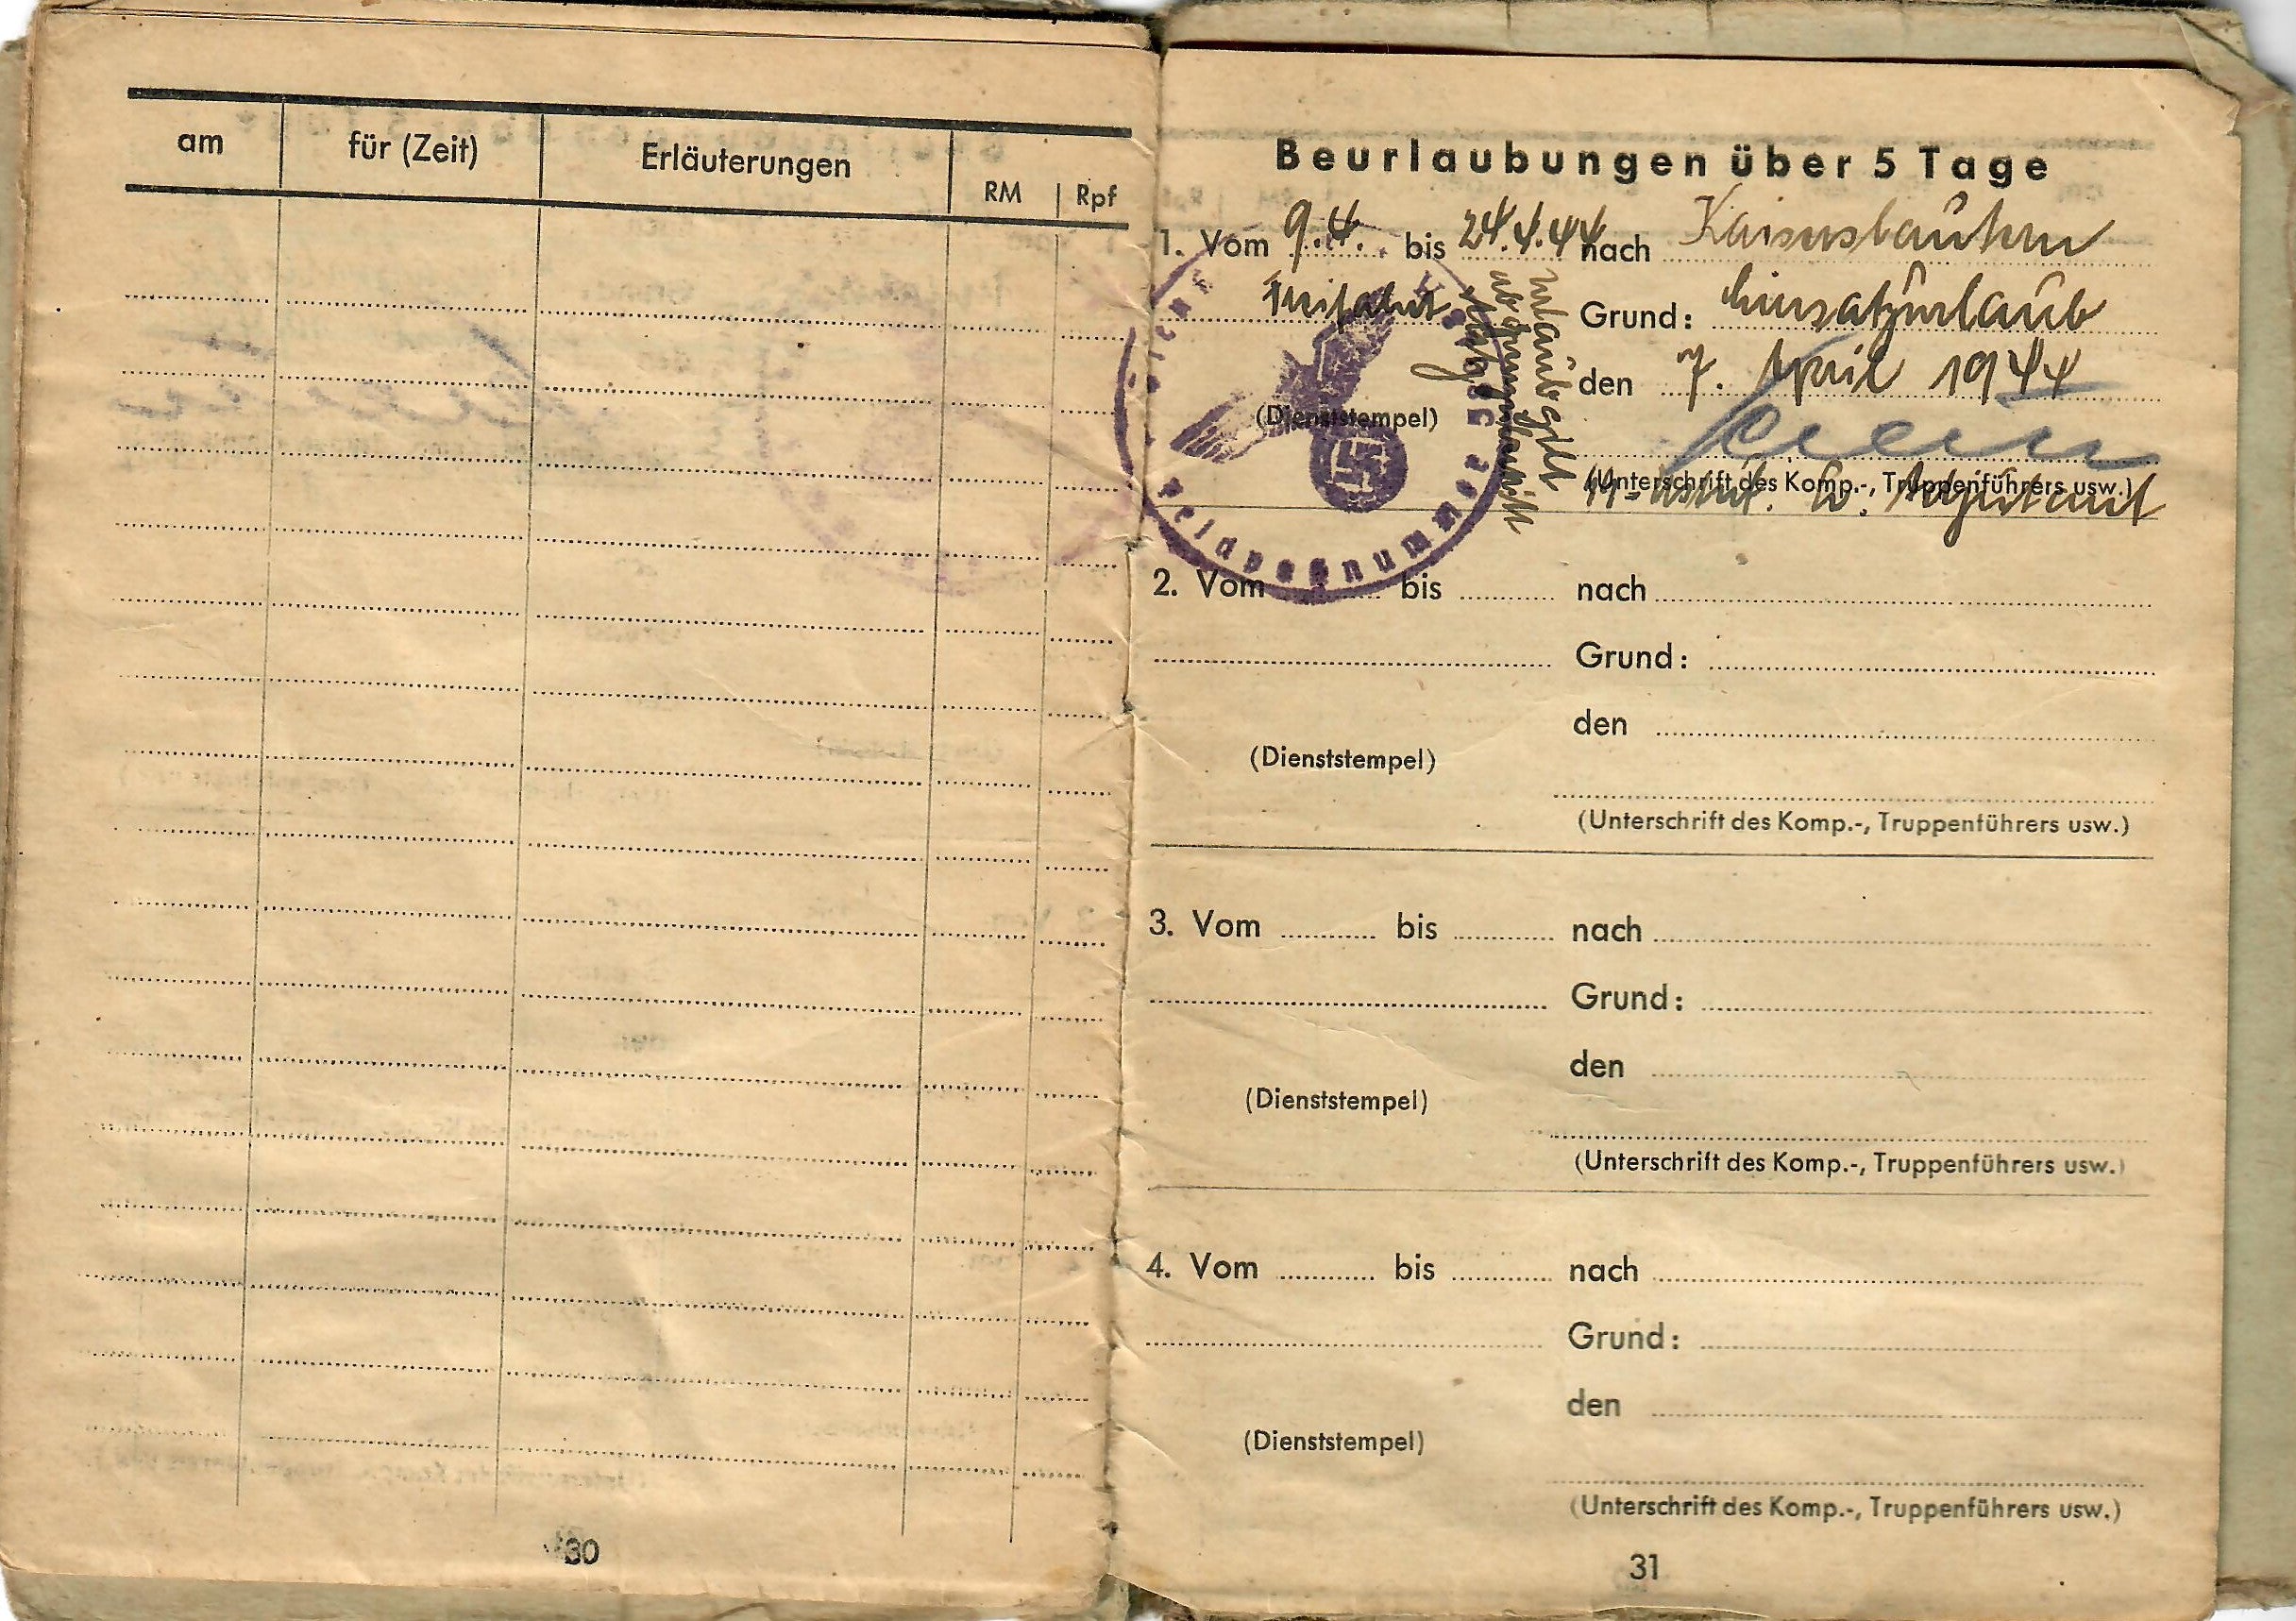 am für (Zeit) Erläuterungen RM Rpf
30
Beurlaubungen über 5 Tage
1. Vom 9.4. bis 24.4.44 nach Kaiserslautern
Grund: Einsatzurlaub
den 7. April 1944
(Dienststempel)
Feldpostnummer
Urlaub gilt
(Unterschrift des Komp.-, Truppenführers usw.)
u. Adjutant
2. Vom bis nach
Grund:
den
(Dienststempel)
(Unterschrift des Komp.-, Truppenführers usw.)
3. Vom bis nach
Grund:
den
(Dienststempel)
(Unterschrift des Komp.-, Truppenführers usw.)
4. Vom bis nach
Grund:
den
(Dienststempel)
(Unterschrift des Komp.-, Truppenführers usw.)
31